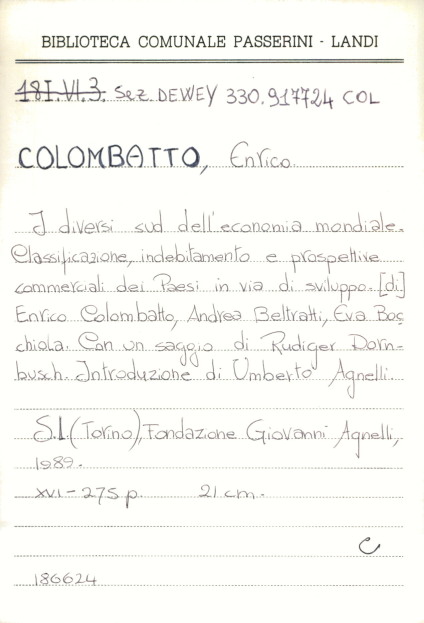 BIBLIOTECA COMUNALE PASSERINI - LANDI
18I.VI.3. Sez. DEWEY 330.917724 COL
COLOMBATTO, Enrico
I diversi sud dell'economia mondiale.
Classificazione, indebitamento e prospettive
commerciali dei Paesi in via di sviluppo. [di]
Enrico Colombatto, Andrea Beltratti, Eva Boc
chiola. Con un saggio di Rudiger Dorn-
busch. Introduzione di Umberto Agnelli.
S.l. (Torino), Fondazione Giovanni Agnelli,
1989.
XVI - 275 p. 21 cm.
C
186624